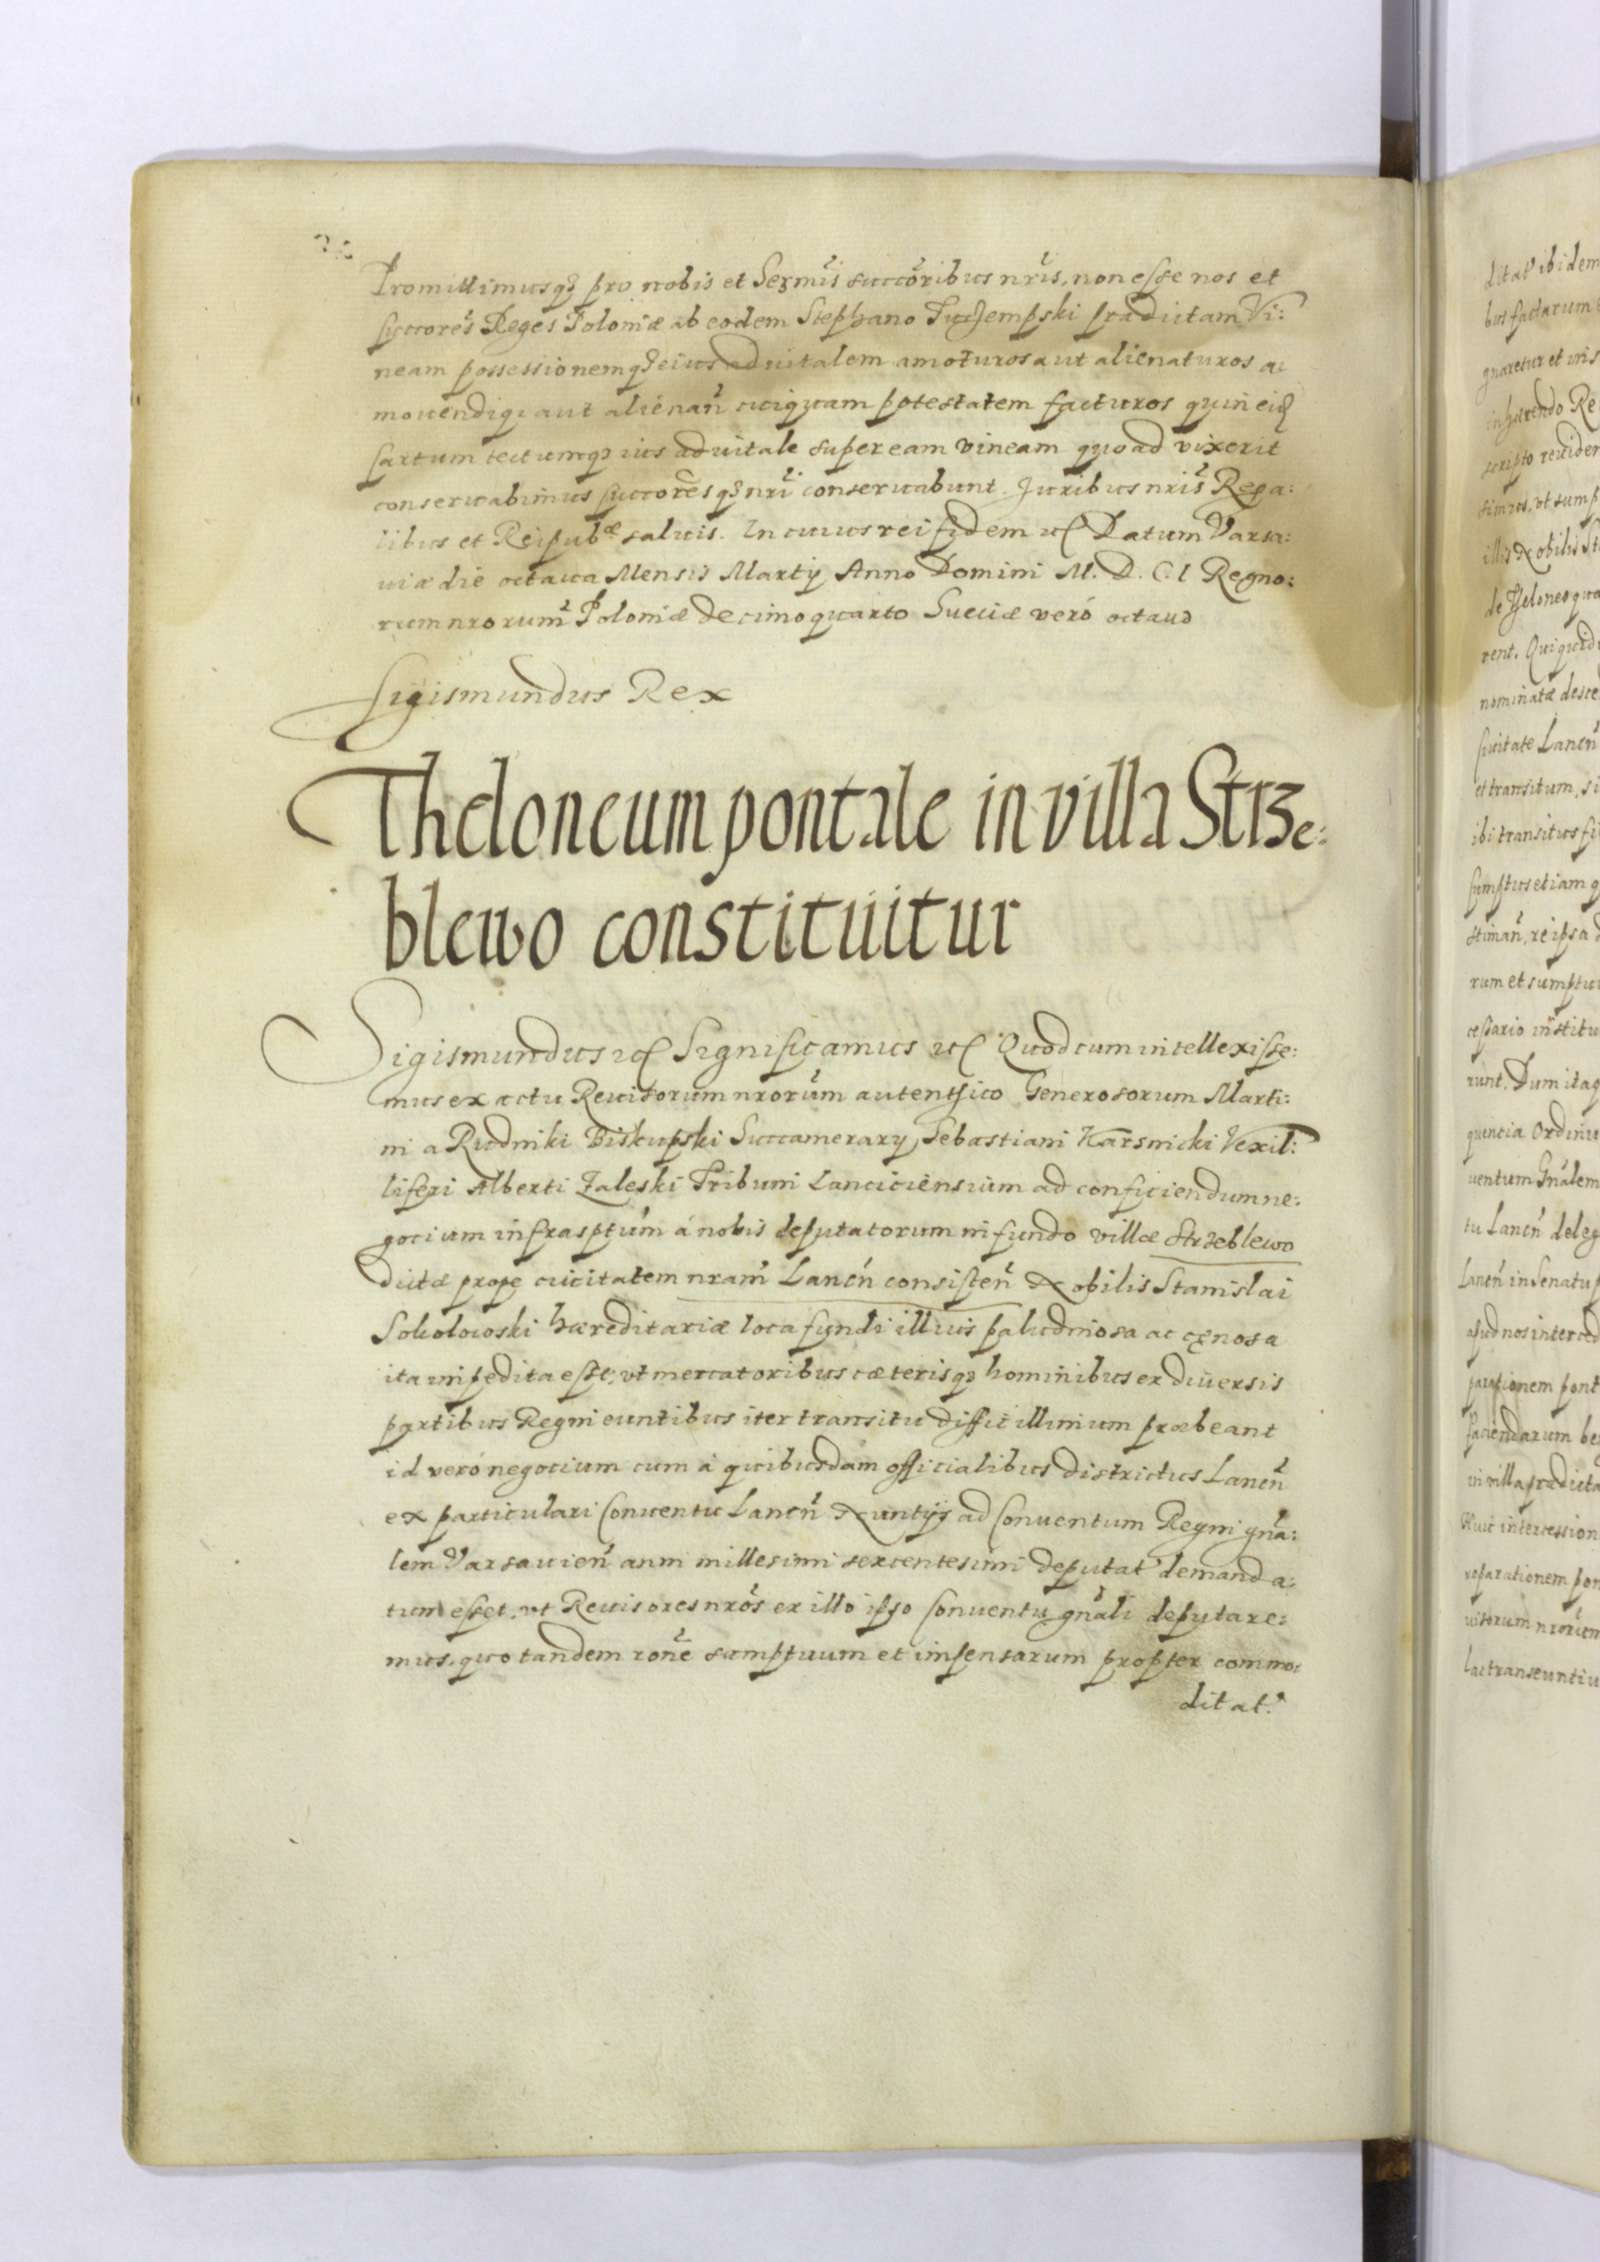 Promittimusq₃ pro nobis et Sermis succoribus nris, non esse nos et
succores Reges Poloniæ ab eodem Stephano prædictam Vi:
neam possessionemq₃ eius aduitalem amoturos aut alienaturos a:
mouendiq₃ aut alienan cuiquam potestatem facturos quin eiq
sartum tectumq₃ ius aduitale super eam vineam quoad vixerit
conseruabimus succoresq₃ nri conseruabunt. Juribus nris Rega:
libus et Reipubæ saluis. In cuius rei fidem etc Datum Varsa:
uiæ die octaua Mensis Martij Anno Domini M. D. C. I Regno:
rum nrorum Poloniæ decimo quarto Sueciæ veró octauo
Sigismundus Rex
Theloneum pontale in villa Strze:
blewo constituitur
Sigismundus etc Significamus etc Quod cum intellexisse:
mus ex actu Reuisorum nrorum autenthico Generosorum Marti:
ni a Rudniki Biskupski Succamerarij Sebastiani Karsnicki Vexil:
liferi Alberti Zaleski Tribuni Lanciciensium ad conficiendum ne:
gocium infrasptum á nobis deputatorum in fundo villæ Strzeblewo
dictæ prope ciuitatem nram Lancn consisten Nobilis Stanislai
Sokolowski hæreditariæ loca fundi illius paludinosa ac cęnosa
ita impedita esse, vt mercatoribus cæterisq₃ hominibus ex diuersis
partibus Regni euntibus iter transitu difficillimum præbeant
id veró negocium cum á quibusdam officialibus districtus Lancn
ex particulari Conuentu Lancn Nuntijs ad Conuentum Regni gna:
lem Varsauien anni millesimi sexcentesimi deputat demanda:
tum esset, vt Reuisores nros ex illo ipso Conuentu gnali deputare:
mus, quo tandem rone sumptuum et impensarum propter commo:
ditat.
ditat ibidem
bus factarum
gnaretur et vris
inhærendo Re
scripto reuiden
simus, vt sump
illis Nobilis St
de Theloneo qua
rent. Qui quid
nominatæ desce
ciuitate Lancn
et transitum, si
ibi transitus fi
sumptus etiam q
stiman, re ipsa d
rum et sumptu
cessario institu
runt. Dum itaq
quentia Ordinu
uentum Gnalem
tu Lancn deleg
Lancn in Senatu p
apud nos interced
parationem pont
faciendarum be
in villa prædicta
Huic intercession
reparationem pon
uisorum nrorum
lac transeuntiu